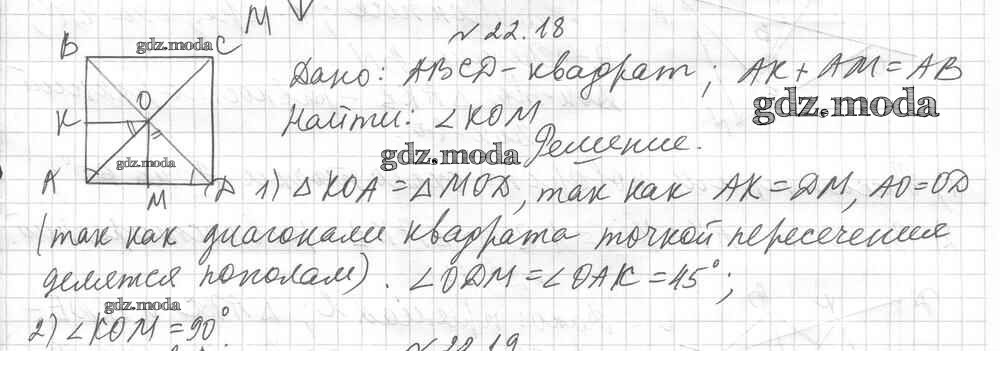 M
№ 22.18
B
gdz.moda
C
Дано: ABCD - квадрат; AK + AM = AB
O
gdz.moda
K
Найти: ∠KOM
gdz.moda
gdz.moda
Решение.
A
M
D
1) △KOA = △MOD, так как AK = DM, AO = OD
(так как диагонали квадрата точкой пересечения
делятся пополам). ∠ODM = ∠OAK = 45°;
gdz.moda
2) ∠KOM = 90°.